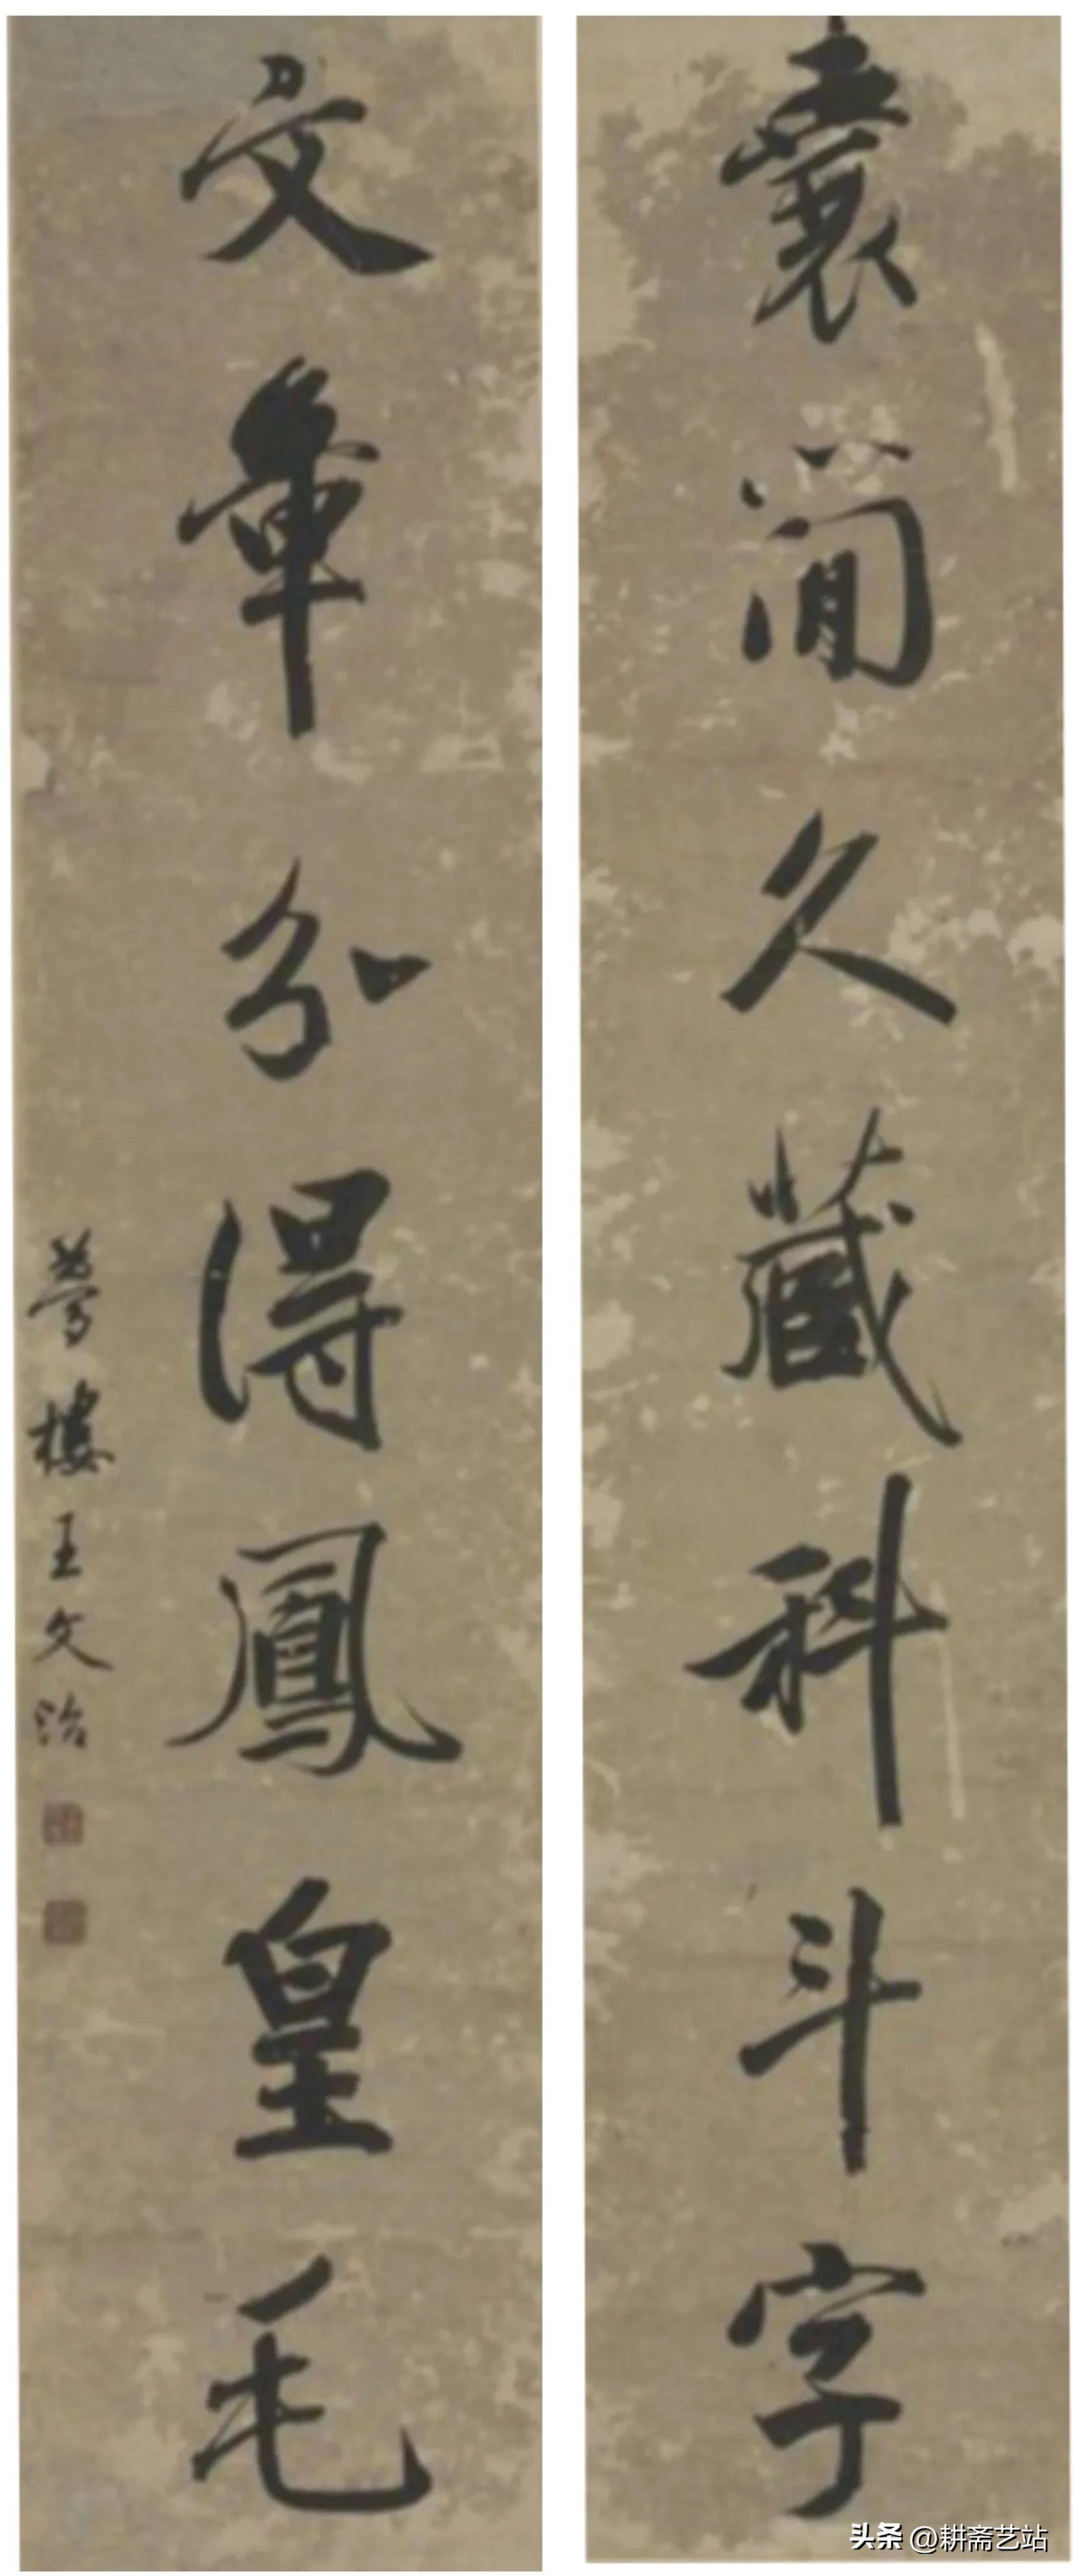 囊简久藏科斗字
文章分得鳳皇毛
夢樓王文治
头条 @耕斋艺站